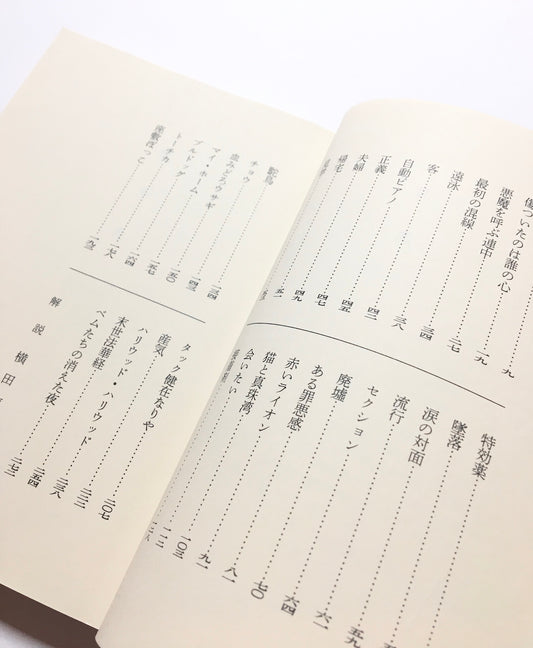 傷ついたのは誰の心 九
悪魔を呼ぶ連中 一九
最初の混線 二七
遠泳 三四
客 三八
自動ピアノ 四二
正義 四五
夫婦 四七
帰宅 四九
五一
特効薬
墜落
涙の対面
流行 五九
セクション 六一
廃墟 六四
ある罪悪感 七〇
赤いライオン 八一
猫と真珠湾 九一
会いたい 一〇三
一一二
駝鳥 一三四
チョウ 一四三
血みどろウサギ 一五〇
マイ・ホーム 一五七
ブルドッグ 一六四
トーチカ 一七八
座敷ぼっこ 一九三
タック健在なりや 二〇七
産気 二二二
ハリウッド・ハリウッド 二三八
末世法華経 二五四
ベムたちの消えた夜 二七二
解説 横田